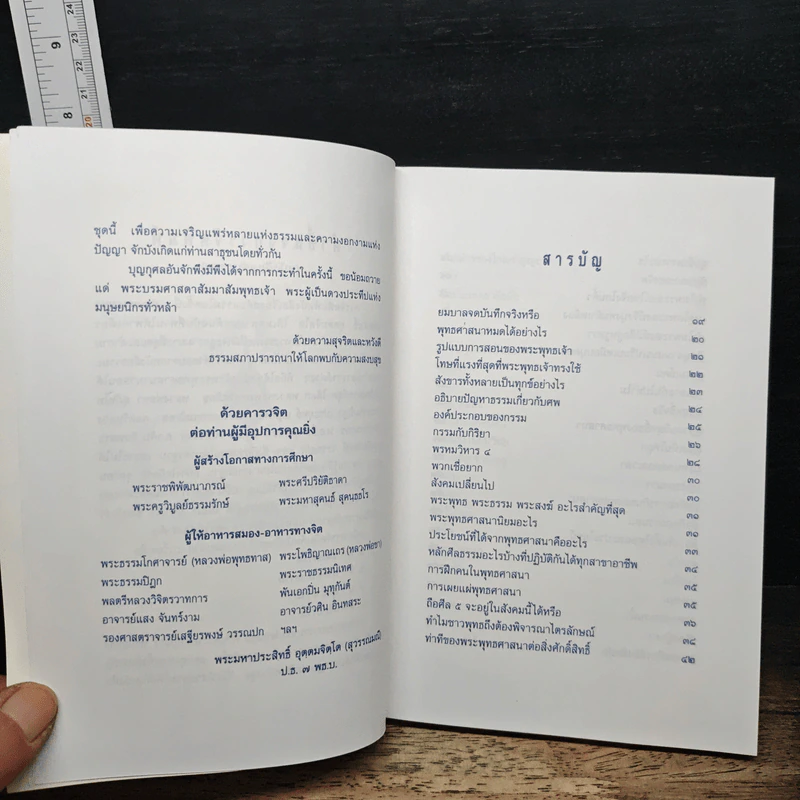 9
24
23
22
21
8
20
ชุดนี้ เพื่อความเจริญแพร่หลายแห่งธรรมและความงอกงามแห่ง
ปัญญา จักบังเกิดแก่ท่านสาธุชนโดยทั่วกัน
บุญกุศลอันจักพึงมีพึงได้จากการกระทำในครั้งนี้ ขอน้อมถวาย
แด่ พระบรมศาสดาสัมมาสัมพุทธเจ้า พระผู้เป็นดวงประทีปแห่ง
มนุษยนิกรทั่วหล้า
ด้วยความสุจริตและหวังดี
ธรรมสภาปรารถนาให้โลกพบกับความสงบสุข
ด้วยคารวจิต
ต่อท่านผู้มีอุปการคุณยิ่ง
ผู้สร้างโอกาสทางการศึกษา
พระราชพิพัฒนาภรณ์ พระศรีปริยัติธาดา
พระครูวิบูลย์ธรรมรักษ์ พระมหาสุคนธ์ สุคนฺธธโร
ผู้ให้อาหารสมอง-อาหารทางจิต
พระธรรมโกศาจารย์ (หลวงพ่อพุทธทาส) พระโพธิญาณเถร (หลวงพ่อชา)
พระธรรมปิฎก พระราชธรรมนิเทศ
พลตรีหลวงวิจิตรวาทการ พันเอกปิ่น มุทุกันต์
อาจารย์แสง จันทร์งาม อาจารย์วศิน อินทสระ
รองศาสตราจารย์เสฐียรพงษ์ วรรณปก ฯลฯ
พระมหาประสิทธิ์ อุตฺตมจิตฺโต (สุวรรณมณี)
ป.ธ. ๗ พธ.บ.
สารบัญ
ยมบาลจดบันทึกจริงหรือ ๑๙
พุทธศาสนาหมดได้อย่างไร ๒๐
รูปแบบการสอนของพระพุทธเจ้า ๒๑
โทษที่แรงที่สุดที่พระพุทธเจ้าทรงใช้ ๒๒
สังขารทั้งหลายเป็นทุกข์อย่างไร ๒๓
อธิบายปัญหาธรรมเกี่ยวกับศพ ๒๔
องค์ประกอบของกรรม ๒๕
กรรมกับกิริยา ๒๖
พรหมวิหาร ๔ ๒๘
พวกเชื่อยาก ๓๐
สังคมเปลี่ยนไป ๓๐
พระพุทธ พระธรรม พระสงฆ์ อะไรสำคัญที่สุด ๓๑
พระพุทธศาสนานิยมอะไร ๓๑
ประโยชน์ที่ได้จากพุทธศาสนาคืออะไร ๓๓
หลักศีลธรรมอะไรบ้างที่ปฏิบัติกันได้ทุกสาขาอาชีพ ๓๔
การฝึกคนในพุทธศาสนา ๓๕
การเผยแผ่พุทธศาสนา ๓๕
ถือศีล ๕ จะอยู่ในสังคมนี้ได้หรือ ๓๖
ทำไมชาวพุทธถึงต้องพิจารณาไตรลักษณ์ ๓๘
ท่าทีของพระพุทธศาสนาต่อสิ่งศักดิ์สิทธิ์ ๔๒